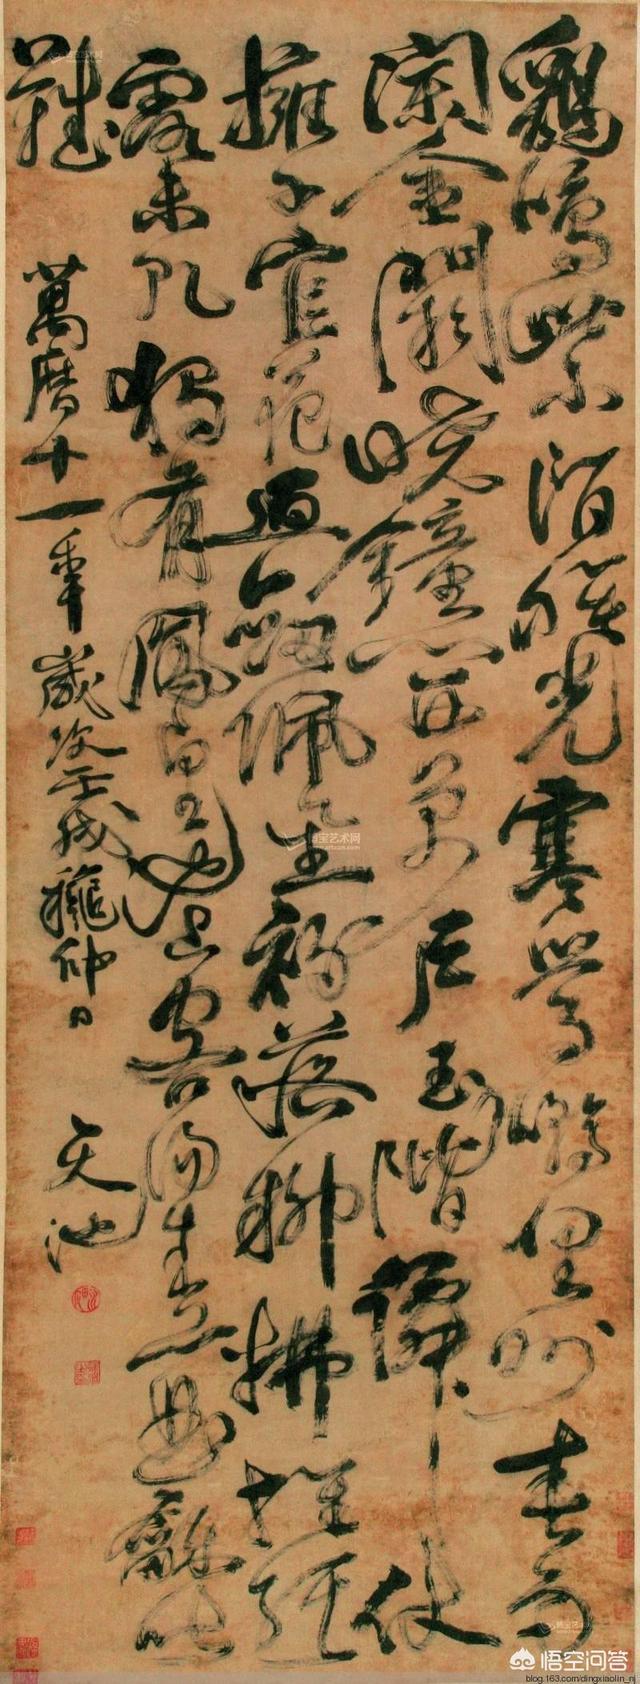 雞鳴紫陌曙光寒鶯囀皇州春色
闌金闕曉鐘開萬戶玉階僊仗
擁千官花迎劍佩星初落柳拂旌旗
露未乾獨有鳳皇池上客陽春一曲和皆
難
萬曆十一年歲次壬戌龝仲日
天池
博宝艺术网
悟空问答
blog.163.com/dingxiaolin_nj